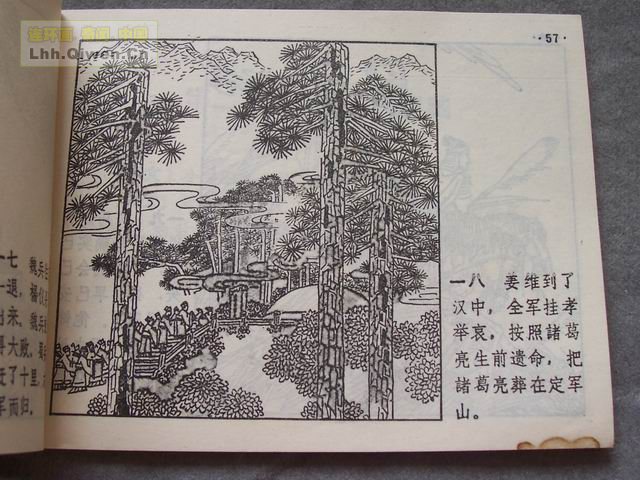 连环画 春阁 中国
Lhh.Qiwen.Cn
·57·
一八 姜维到了
汉中，全军挂孝
举哀，按照諸葛
亮生前遗命，把
諸葛亮葬在定军
山。
七 魏兵
退，杨仪
出来，魏兵
大败，
了十里，
军而归。